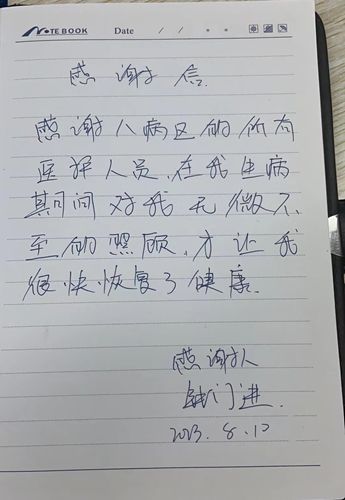 NOTEBOOK Date / /
感谢信
感谢八病区的所有
医护人员,在我生病
期间对我无微不
至的照顾,才让我
很快恢复了健康.
感谢人
门进.
2023.8.12